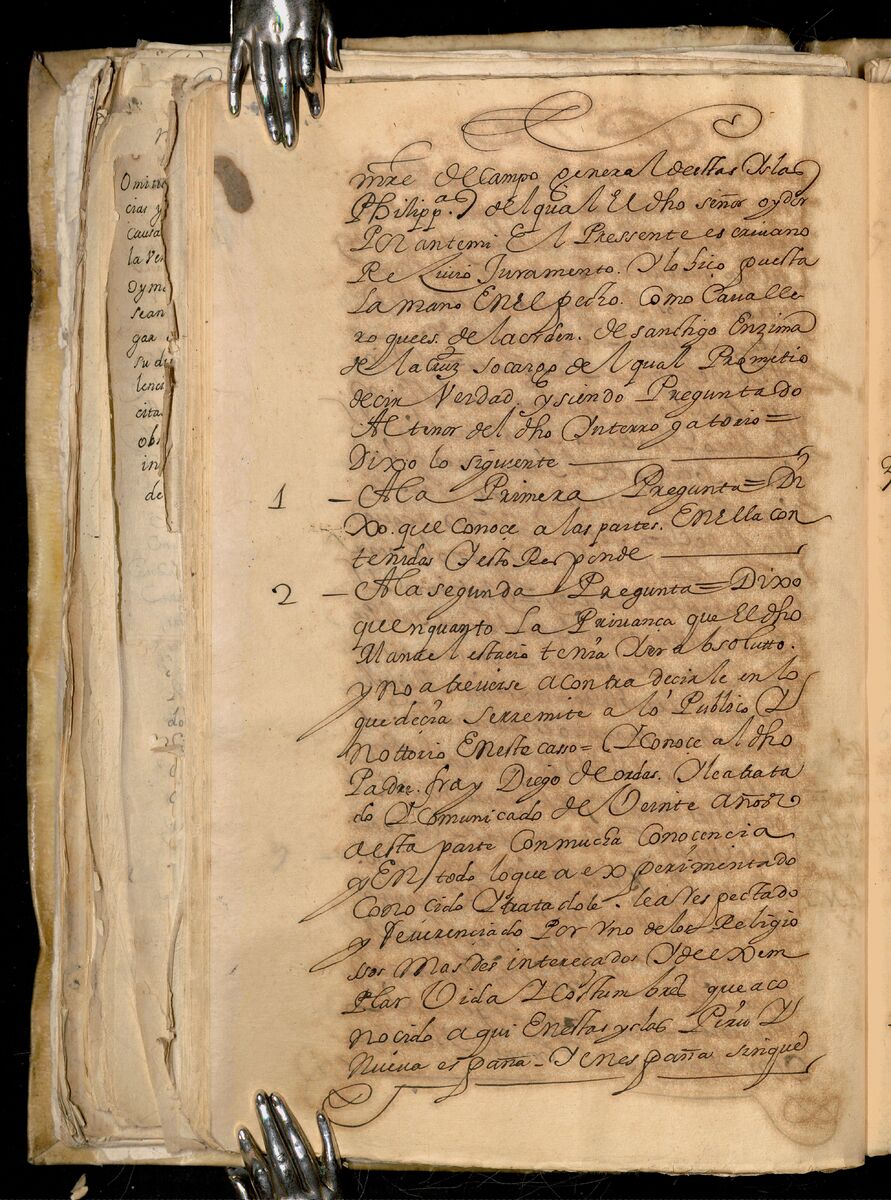 Omitien
cias y
causa
la Ven
oyme
sean
gar
su di
lenci
cita
obs
in
de
mre de campo general destas Yslas
Philippas del qual El dho señor oydor
Por antemi El Pressente escriuano
Reciuio Juramento. Y lo hiço puesta
La mano En el pecho. Como Cavalle
ro que es. de la orden. de santiago Enzima
de la cruz so cargo del qual Prometio
decir Verdad. y siendo Preguntado
Al tenor del dho Ynterrogatorio=
Dixo lo siguiente
1 - A la Primera Pregunta= Di
xo. que conoce a las partes. En ella con
tenidas Y esto Responde
2 - A la segunda Pregunta= Dixo
quenquanto La Priuança que El dho
Manuel estacio tenia Y ser absolutto.
y no atreuerse a contradecirle en lo
que decia se rremite a lo Publico Y
nottorio En este casso= Y Conoce al dho
Padre. fray Diego de ordas. Y le a trata
do Y Comunicado de Veinte años
a esta parte Con mucha Conocencia
y En todo lo que a experimentado
Conocido Y tratadole. le a rrespectado
y Reuerenciado Por Vno de los Religio
ssos Mas desinterecados Y de exem
Plar Vida Y Costumbres que a co
nocido aqui En estas yslas Piru Y
Nueva españa - Y en españa sin que